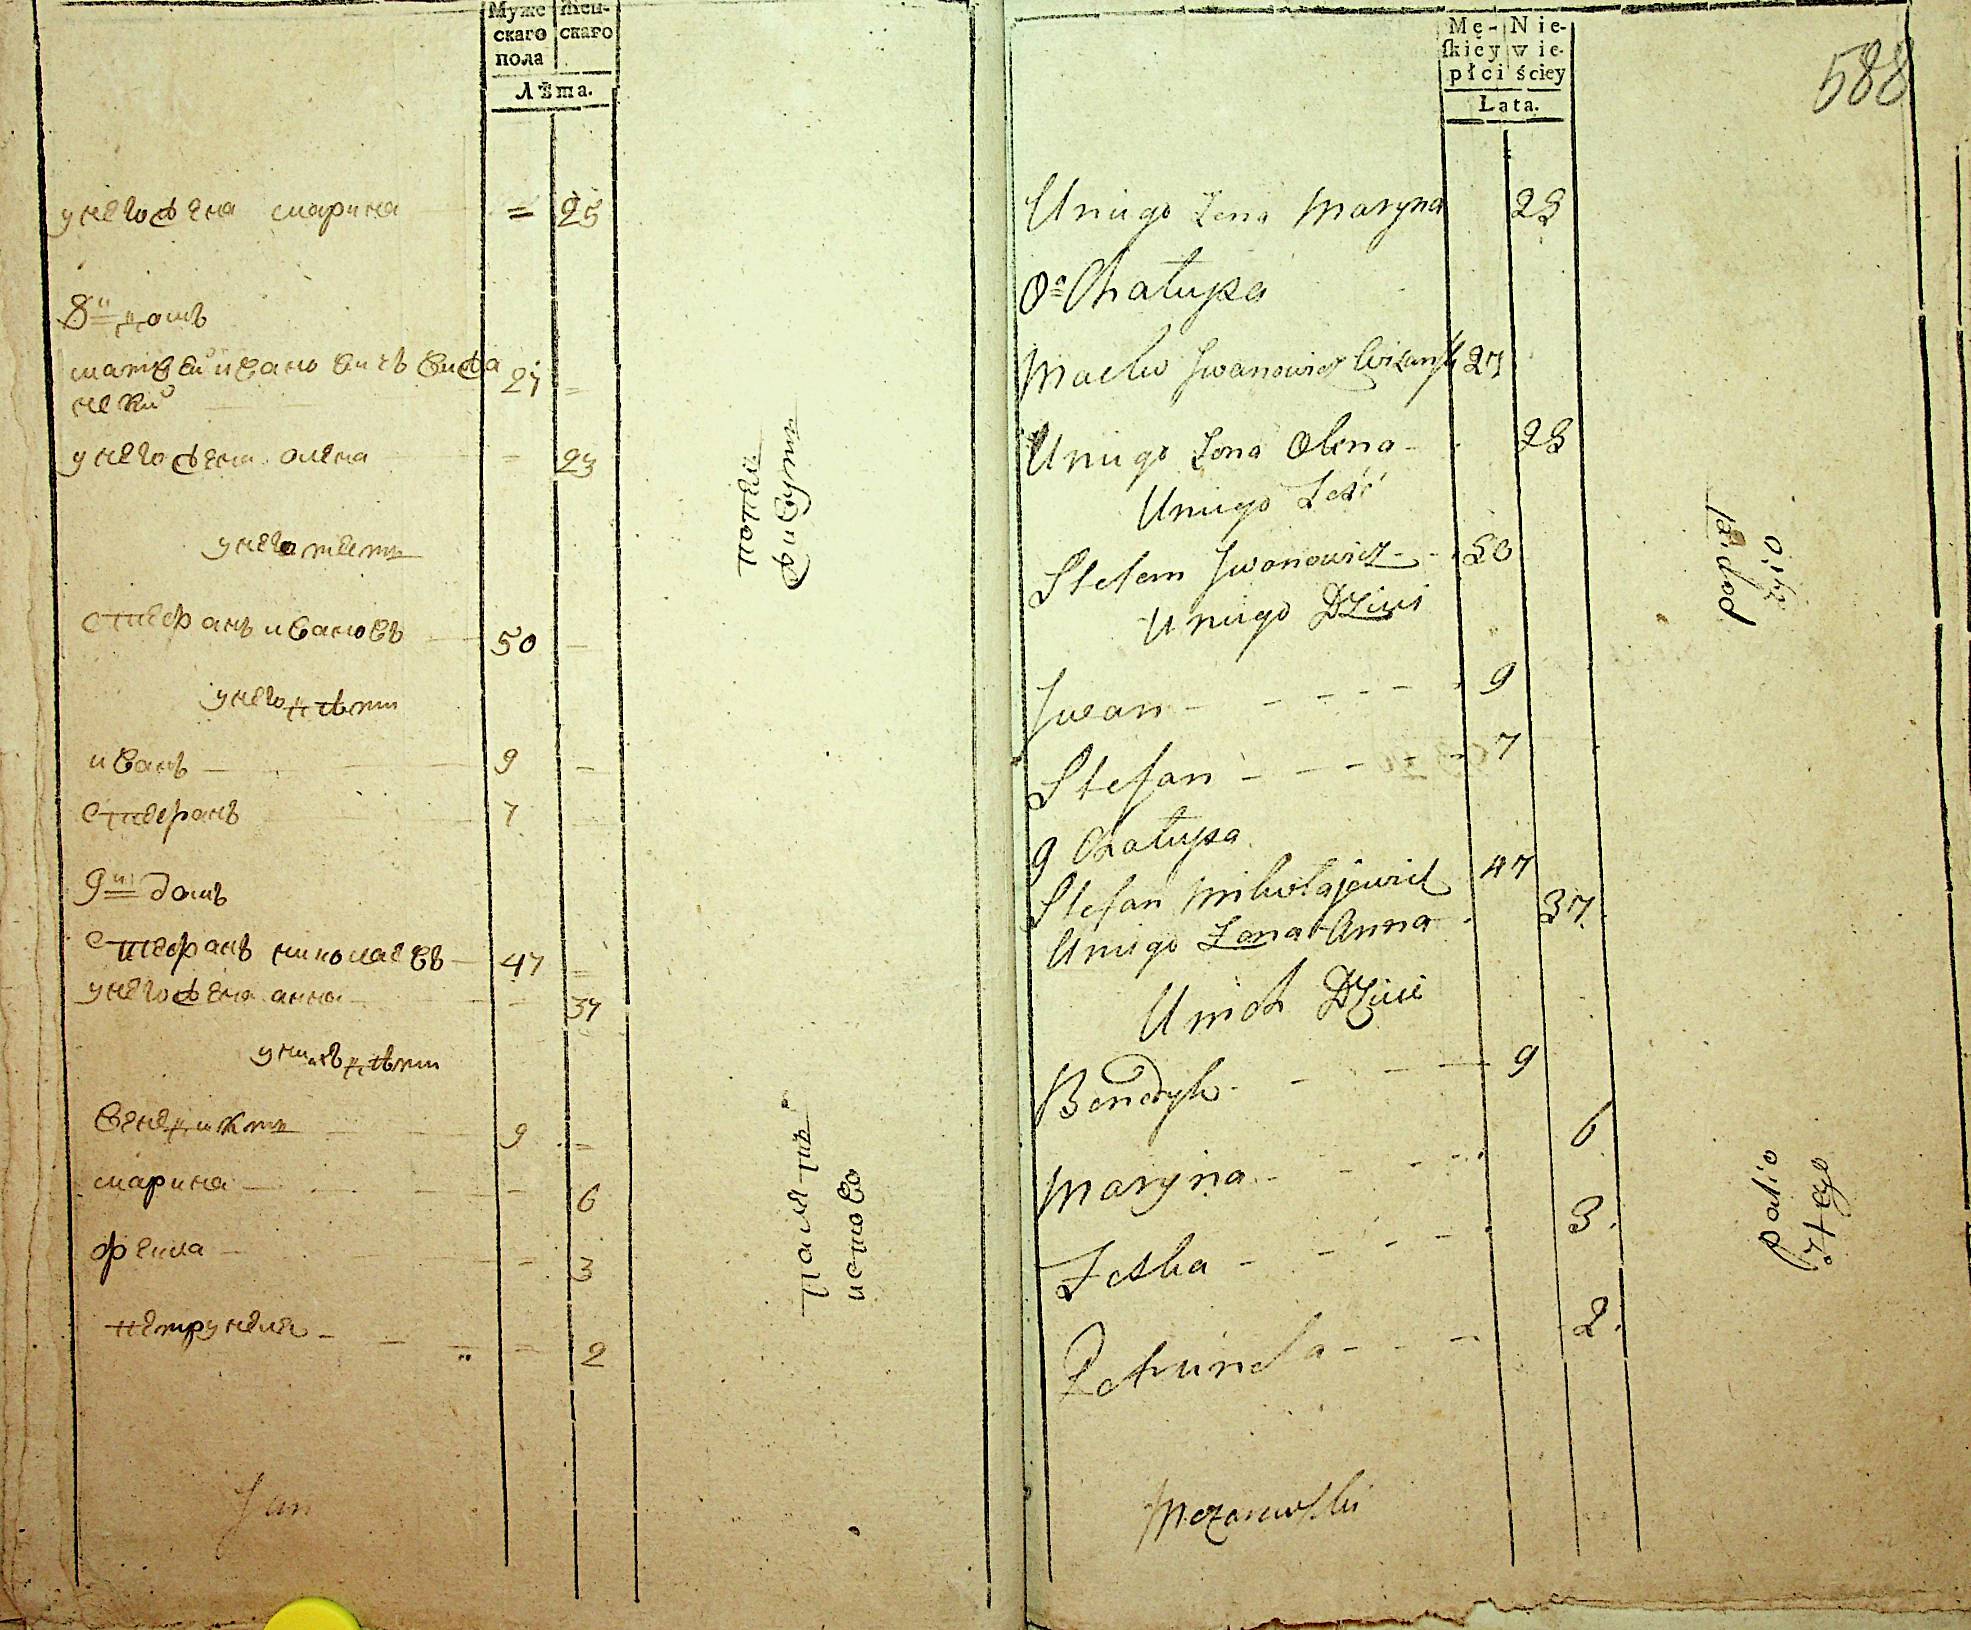 Муже
скаго
пола
Жен-
скаго
Лѣта.
унего жена марина = 25
8й домъ
матвѣй ивановичъ вижа
нскй 27 =
унего жена олена = 23
унего тесть
стефанъ ивановъ 50
унего дѣти
иванъ 9
стефанъ 7
9й домъ
стефанъ николаевъ 47
унего жена анна 37
унихъ дѣти
венедиктъ 9
марина 6
фенка 3
петрунеля 2
Jan
Mę-
skiey
płci
Nie-
wie-
ściey
Lata.
588
Uniego Zona Maryna 23
8a Chałupa
Maciey Jwanowicz 27
Uniego Zona Olena 23
Uniego Teść
Stefan Jwanowicz 50
Uniego Dzieci
Jwan 9
Stefan 7
9 Chałupa
Stefan Mikołajewicz 47
Uniego Zona Anna 37
Unich Dzieci
Benedyk 9
Maryna 6
3
Petrunela 2